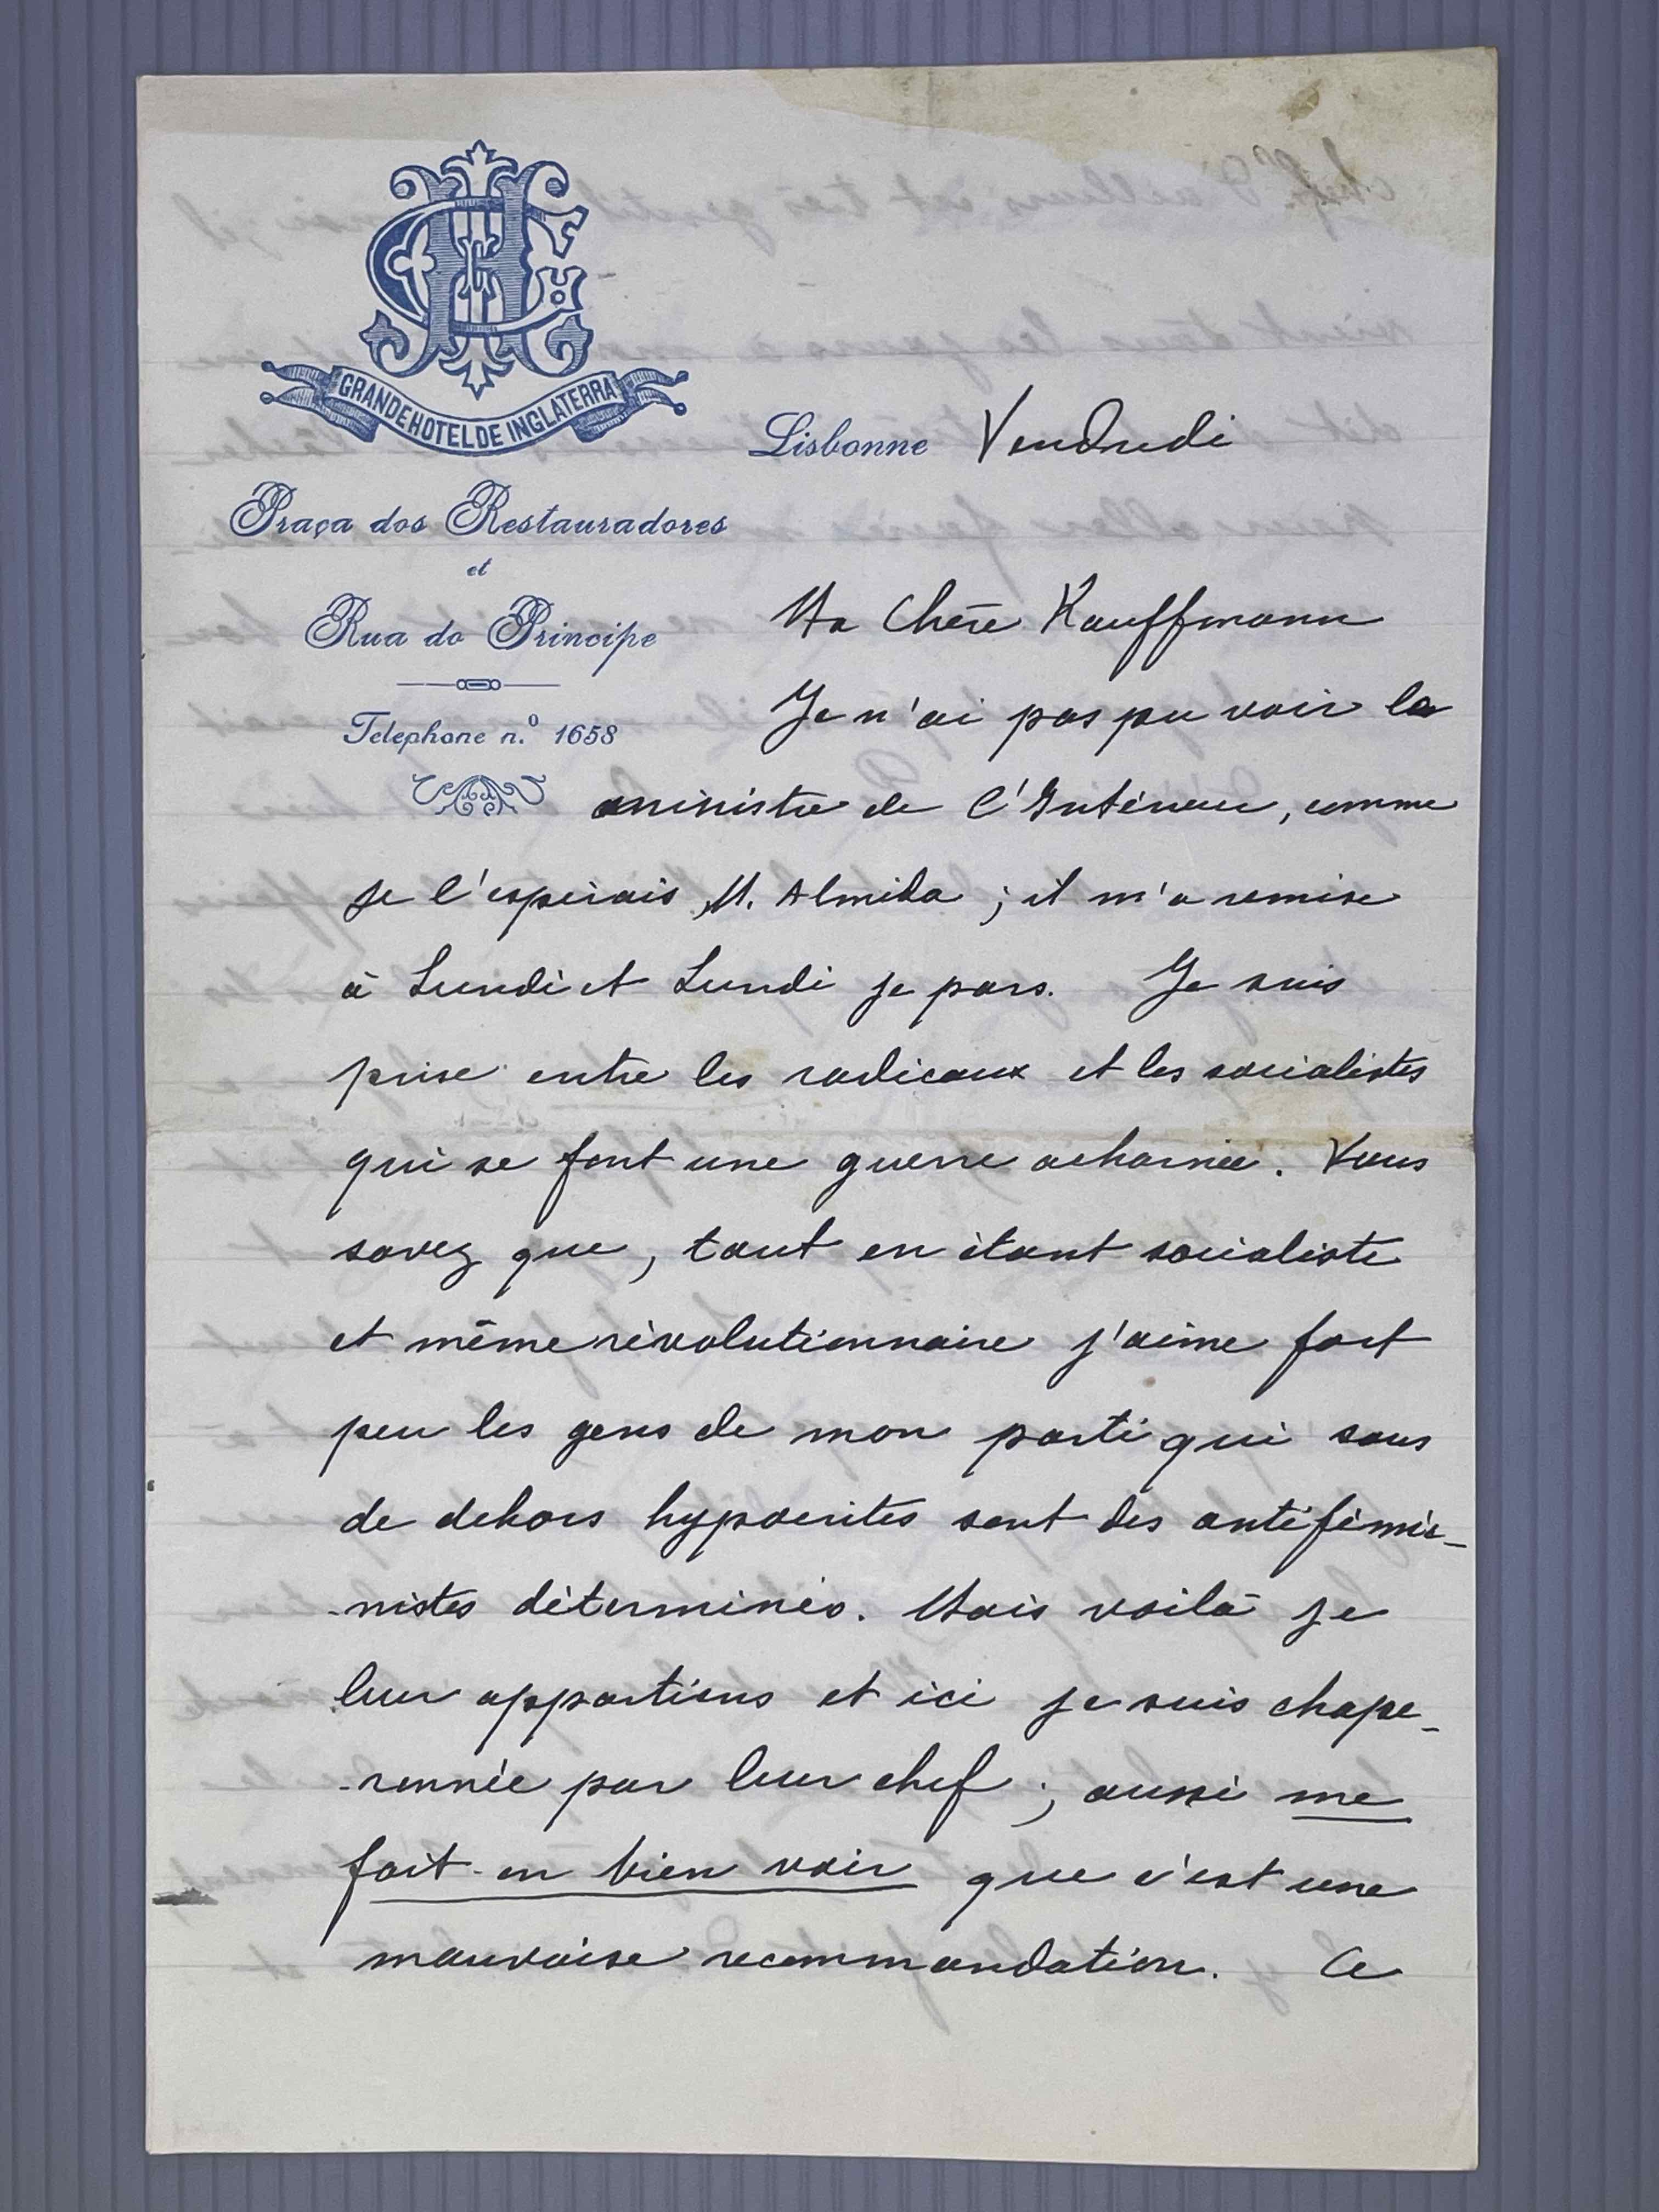 GRANDE HOTEL DE INGLATERRA
Lisbonne Vendredi
Praça dos Restauradores
et
Rua do Principe
Telephone n.º 1658
Ma Chère Kauffmann
Je n'ai pas pu voir le
ministre de l'Intérieur, comme
je l'espérais, M. Almida ; il m'a remise
à Lundi et Lundi je pars. Je suis
prise entre les radicaux et les socialistes
qui se font une guerre acharnée. Vous
savez que, tout en étant socialiste
et même révolutionnaire j'aime fort
peu les gens de mon parti qui sous
de dehors hypocrites sont des antifémi-
-nistes déterminés. Mais voilà je
leur appartiens et ici je suis chape-
-ronnée par leur chef ; aussi me
fait-on bien voir que c'est une
mauvaise recommandation. Ce